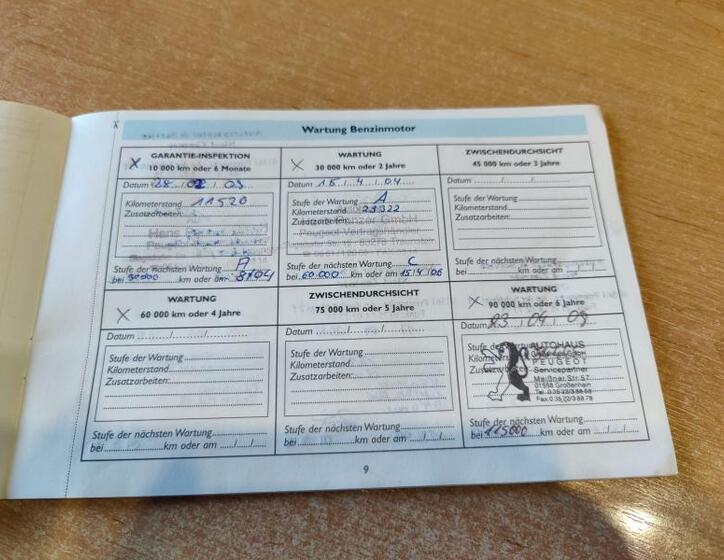 Wartung Benzinmotor
GARANTIE-INSPEKTION
10 000 km oder 6 Monate
Datum 28 02 03
Kilometerstand 11520
Zusatzarbeiten:
Stufe der nächsten Wartung A
bei km oder am
WARTUNG
30 000 km oder 2 Jahre
Datum 15 4 04
Stufe der Wartung A
Kilometerstand
Zusatzarbeiten:
GmbH
Peugeot-Vertragshändler
Stufe der nächsten Wartung C
bei 60.000 km oder am 15/4/06
ZWISCHENDURCHSICHT
45 000 km oder 3 Jahre
Datum / /
Stufe der Wartung
Kilometerstand
Zusatzarbeiten:
Stufe der nächsten Wartung
bei km oder am / /
WARTUNG
60 000 km oder 4 Jahre
Datum / /
Stufe der Wartung
Kilometerstand
Zusatzarbeiten:
Stufe der nächsten Wartung
bei km oder am / /
ZWISCHENDURCHSICHT
75 000 km oder 5 Jahre
Datum / /
Stufe der Wartung
Kilometerstand
Zusatzarbeiten:
Stufe der nächsten Wartung
bei km oder am / /
WARTUNG
90 000 km oder 6 Jahre
Datum 23 04 09
Stufe der Wartung
AUTOHAUS
PEUGEOT
Servicepartner
Meißner Str. 57
01558 Großenhain
Stufe der nächsten Wartung
bei 115000 km oder am / /
9